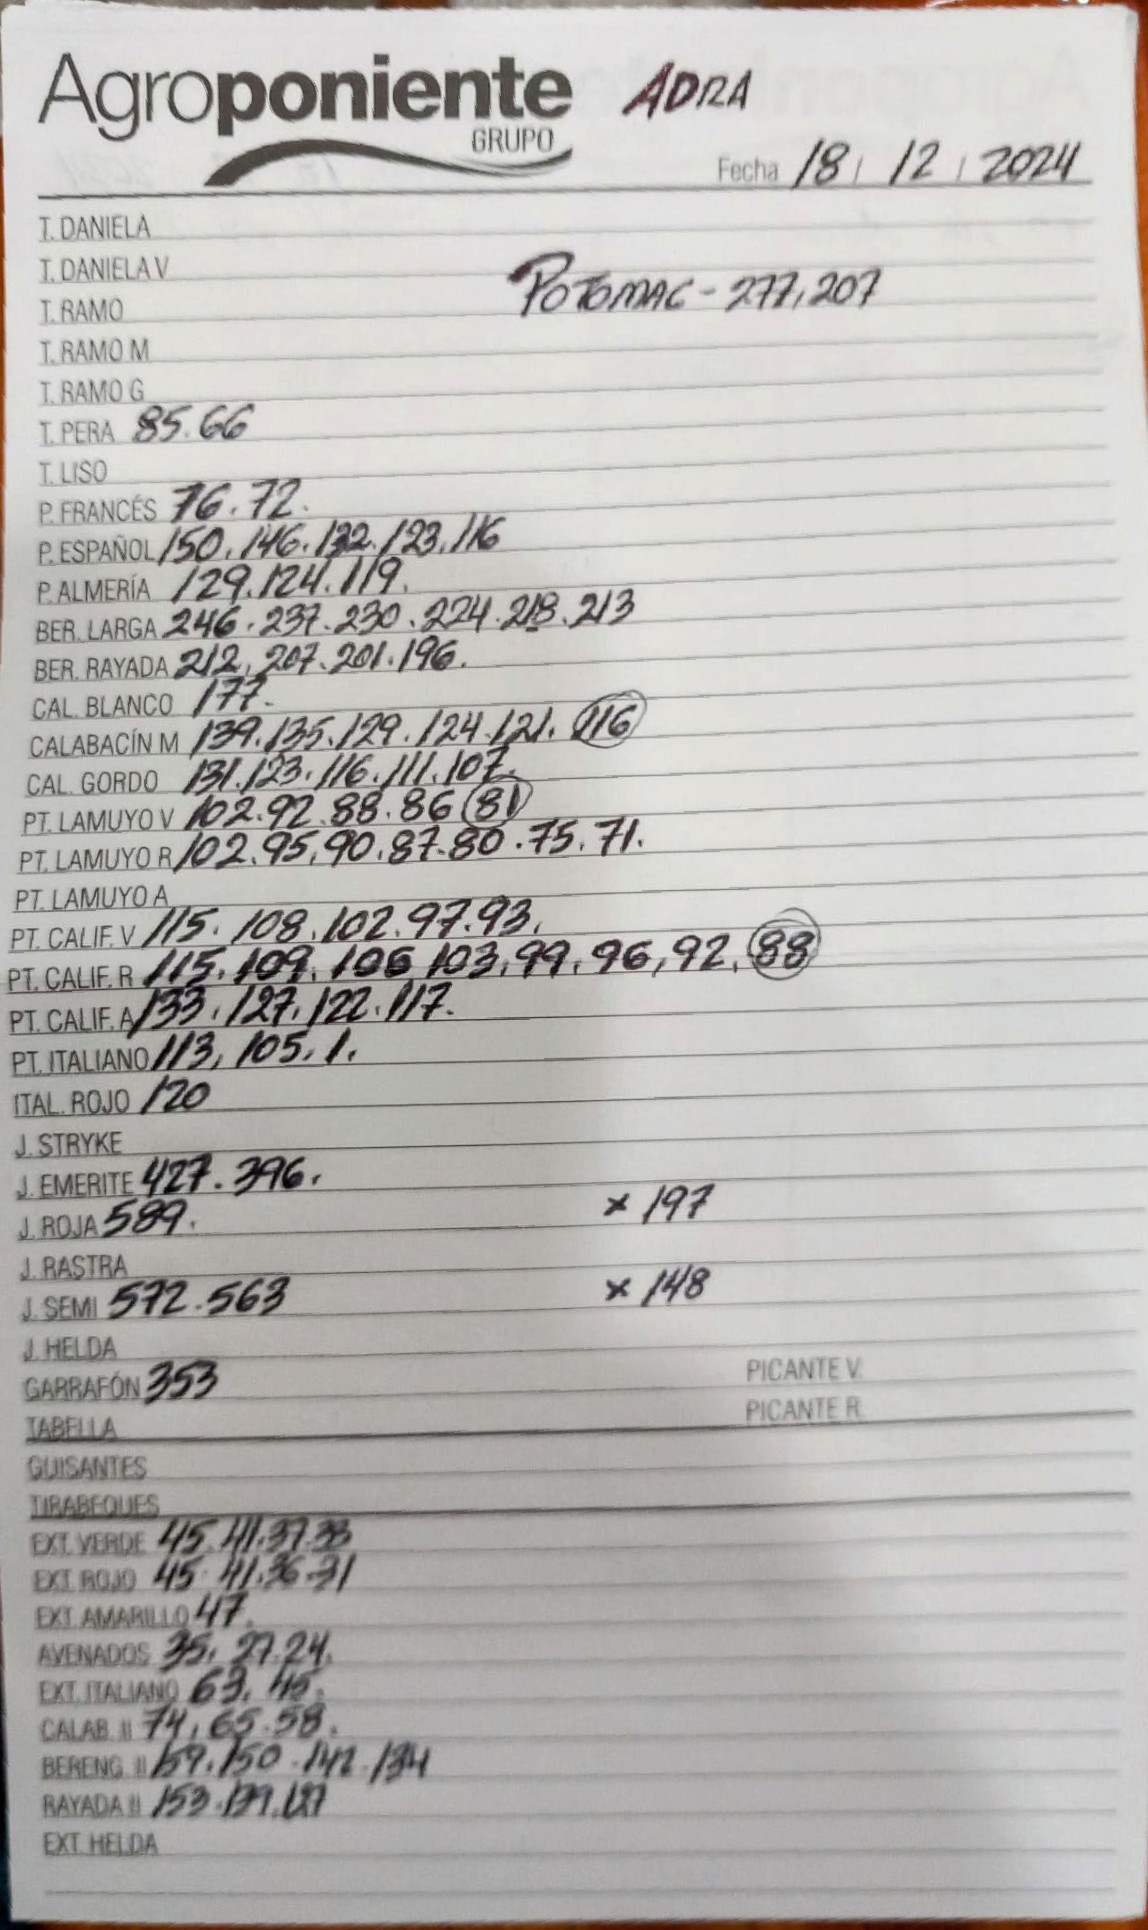 Agroponiente ADRA
GRUPO
Fecha 18 / 12 / 2024
T. DANIELA
T. DANIELA V
POTOMAC - 277, 207
T. RAMO
T. RAMO M
T. RAMO G
T. PERA 85. 66
T. LISO
P. FRANCÉS 76. 72.
P. ESPAÑOL 150. 146. 132. 123. 116
P. ALMERÍA 129. 124. 119.
BER. LARGA 246. 237. 230. 224. 218. 213
BER. RAYADA 212, 207. 201. 196.
CAL. BLANCO 177.
CALABACÍN M 139. 135. 129. 124. 121. 116
CAL. GORDO 131. 123. 116. 111. 107.
PT. LAMUYO V 102. 92. 88. 86 81
PT. LAMUYO R 102. 95, 90. 87. 80. 75. 71.
PT. LAMUYO A
PT. CALIF. V 115. 108. 102. 97. 93.
PT. CALIF. R 115. 109. 106 103, 99, 96, 92. 88
PT. CALIF. A 133. 127. 122. 117.
PT. ITALIANO 113, 105. 1.
ITAL. ROJO 120
J. STRYKE
J. EMERITE 427. 396.
J. ROJA 589. x 197
J. RASTRA
J. SEMI 572. 563 x 148
J. HELDA
PICANTE V.
GARRAFÓN 353
PICANTE R
TABELLA
GUISANTES
TIRABEQUES
EXT. VERDE 45. 41. 37. 33
EXT. ROJO 45. 41. 36. 31
EXT. AMARILLO 47.
AVENADOS 35. 27. 24.
EXT. ITALIANO 63. 45.
CALAB. II 74, 65. 58.
BERENG. II 159. 150. 142. 134
RAYADA II 153. 139. 127
EXT. HELDA